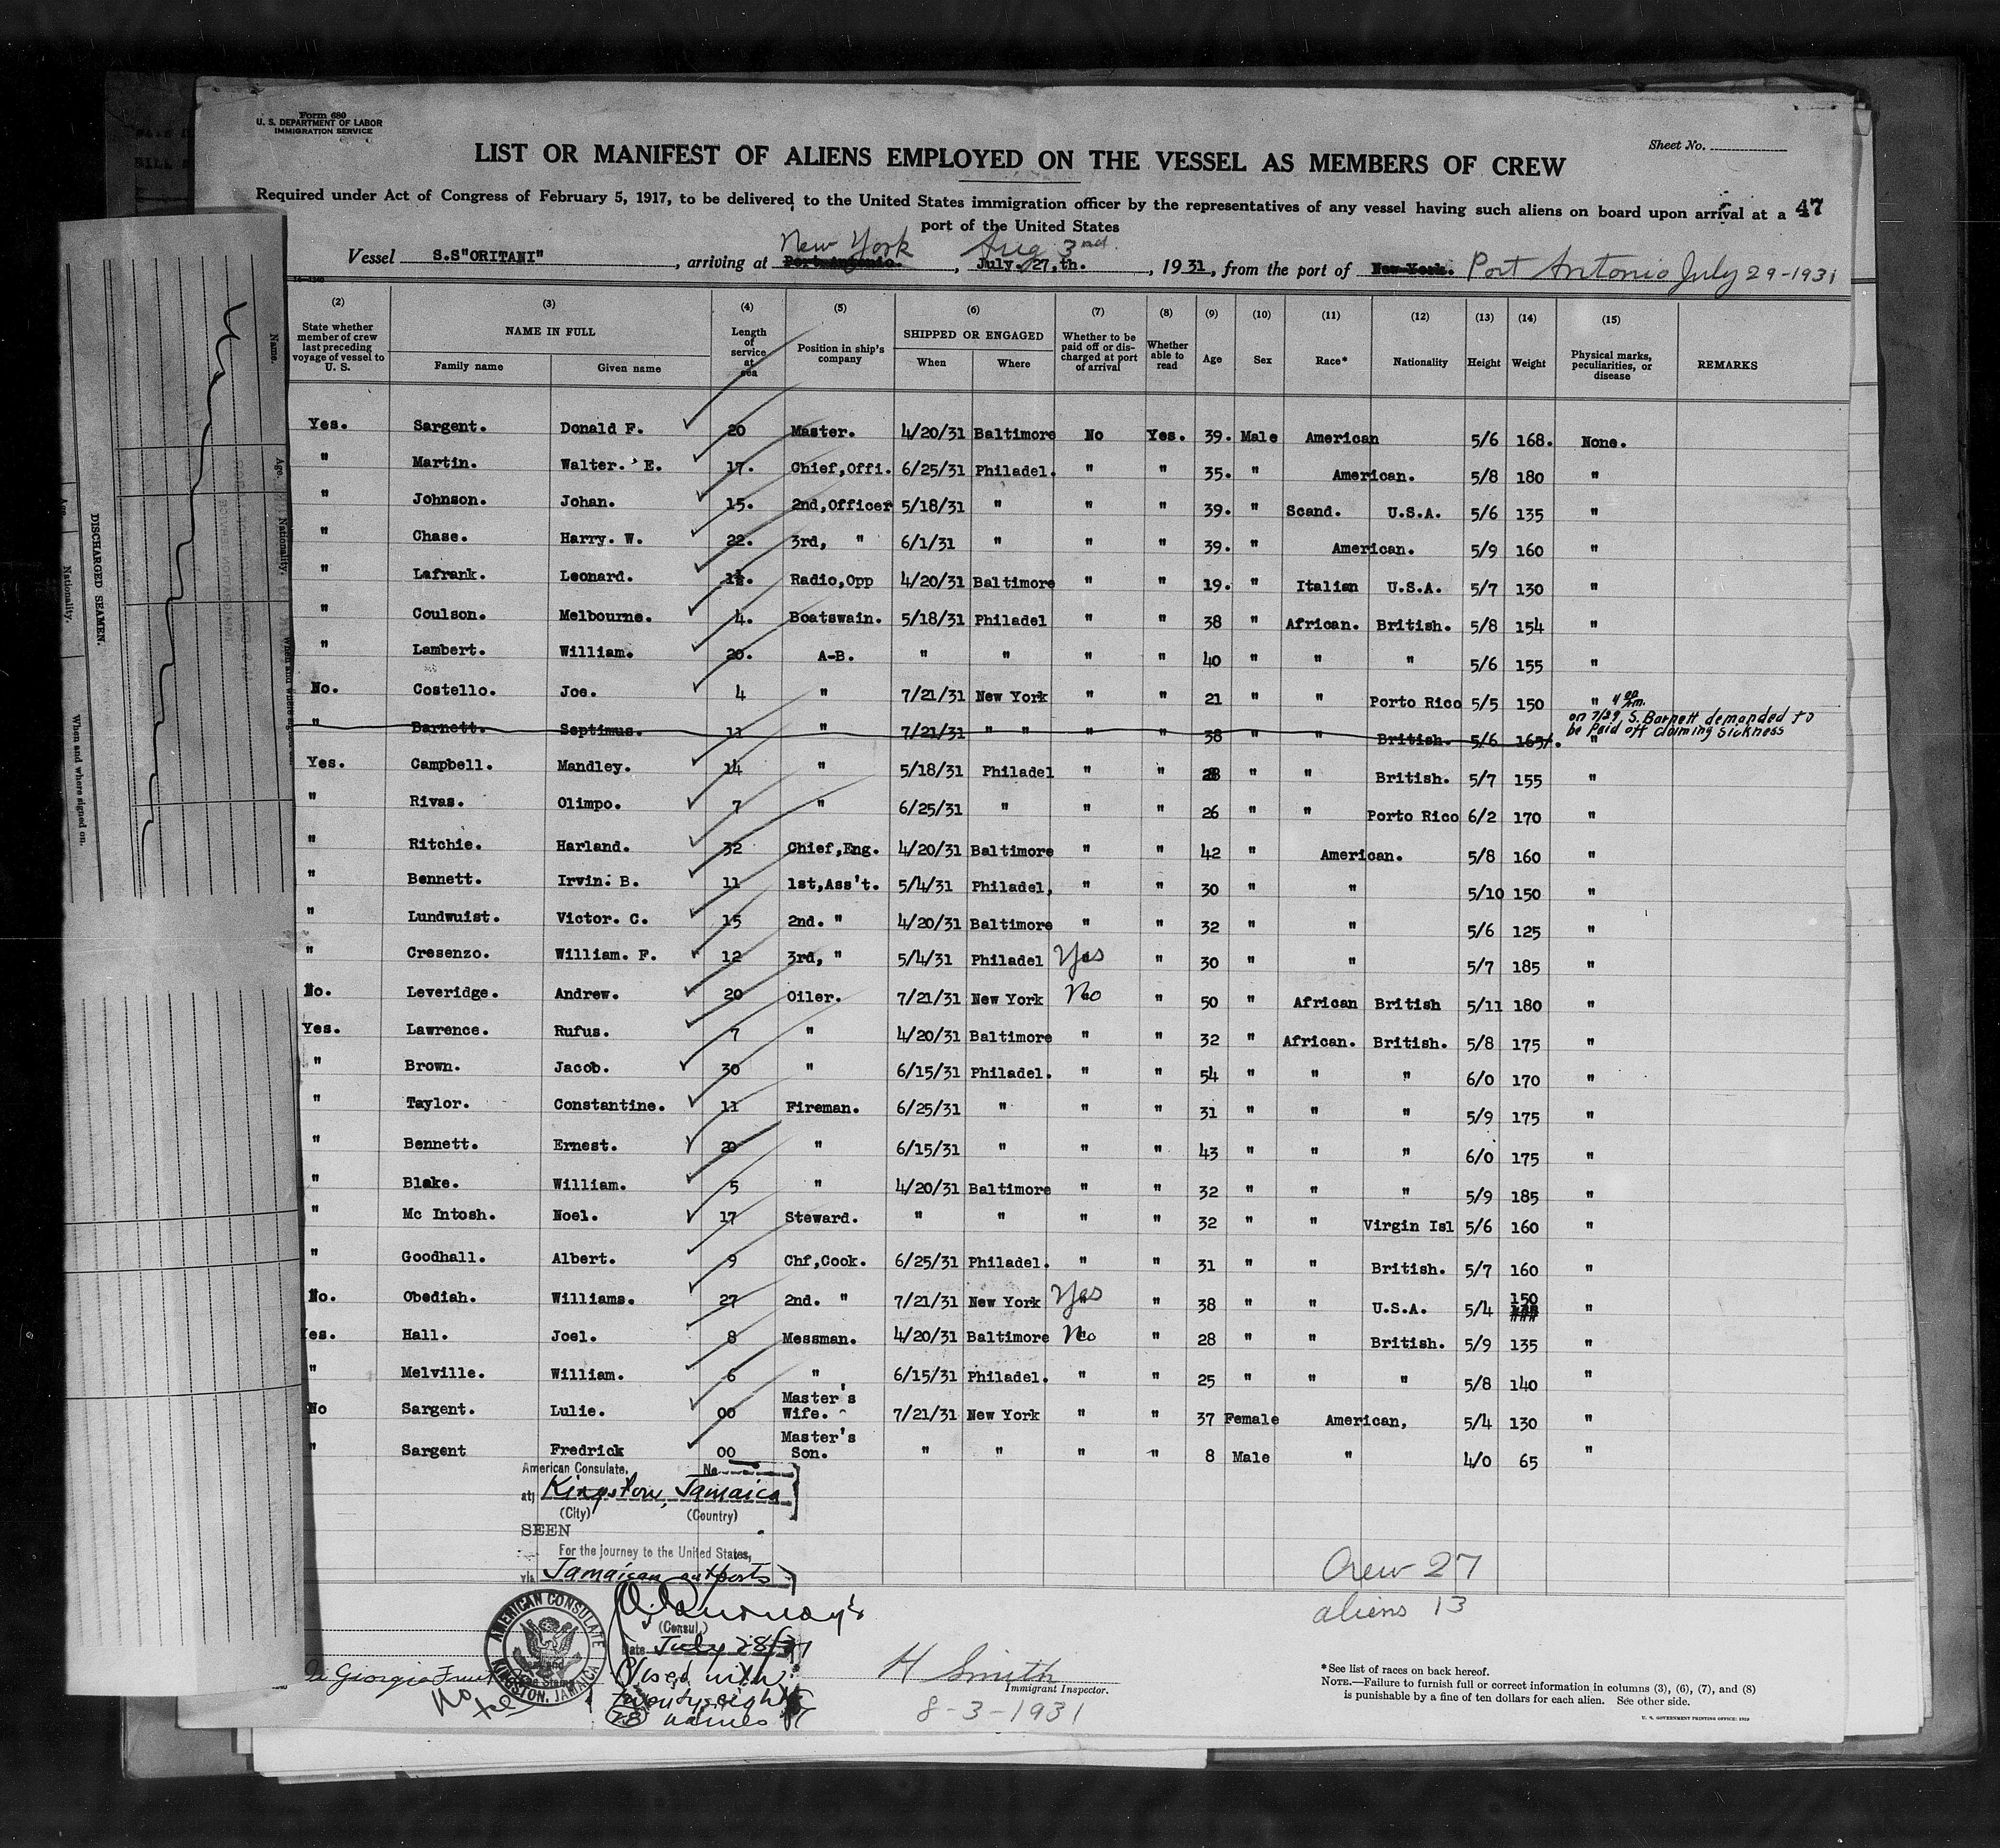 Form 680
U. S. DEPARTMENT OF LABOR
IMMIGRATION SERVICE
Sheet No.
LIST OR MANIFEST OF ALIENS EMPLOYED ON THE VESSEL AS MEMBERS OF CREW
Required under Act of Congress of February 5, 1917, to be delivered to the United States immigration officer by the representatives of any vessel having such aliens on board upon arrival at a 47
port of the United States
New York Aug 3rd.
Vessel S.S"ORITANI" , arriving at Port Antonio. , July. 27,th. , 1931, from the port of New York. Port Antonio July 29-1931
(2) (3) (4) (5) (6) (7) (8) (9) (10) (11) (12) (13) (14) (15)
State whether member of crew last preceding voyage of vessel to U. S. NAME IN FULL Family name Given name Length of service at sea Position in ship's company SHIPPED OR ENGAGED When Where Whether to be paid off or discharged at port of arrival Whether able to read Age Sex Race* Nationality Height Weight Physical marks, peculiarities, or disease REMARKS
Yes. Sargent. Donald F. 20 Master. 4/20/31 Baltimore No Yes. 39. Male American 5/6 168. None.
" Martin. Walter. E. 17. Chief,Offi. 6/25/31 Philadel. " " 35. " American. 5/8 180 "
" Johnson. Johan. 15. 2nd,Officer 5/18/31 " " " 39. " Scand. U.S.A. 5/6 135 "
" Chase. Harry. W. 22. 3rd, " 6/1/31 " " " 39. " American. 5/9 160 "
" Lafrank. Leonard. 1½. Radio,Opp 4/20/31 Baltimore " " 19. " Italian U.S.A. 5/7 130 "
" Coulson. Melbourne. 4. Boatswain. 5/18/31 Philadel " " 38 " African. British. 5/8 154 "
" Lambert. William. 20. A-B. " " " " 40 " " " 5/6 155 "
No. Costello. Joe. 4 " 7/21/31 New York " " 21 " " Porto Rico 5/5 150 "
" Barnett. Septimus. 11 " 7/21/31 " " " " 38 " " British. 5/6 165/. " 4 00 pm. on 7/29 S. Barnett demanded to be Paid off claiming Sickness
Yes. Campbell. Mandley. 14 " 5/18/31 Philadel " " 28 " " British. 5/7 155 "
" Rivas. Olimpo. 7 " 6/25/31 " " " 26 " " Porto Rico 6/2 170 "
" Ritchie. Harland. 32 Chief,Eng. 4/20/31 Baltimore " " 42 " American. 5/8 160 "
" Bennett. Irvin. B. 11 1st,Ass't. 5/4/31 Philadel, " " 30 " " 5/10 150 "
" Lundwuist. Victor. C. 15 2nd. " 4/20/31 Baltimore " " 32 " " 5/6 125 "
" Cresenzo. William. F. 12 3rd, " 5/4/31 Philadel Yes " 30 " " 5/7 185 "
No. Leveridge. Andrew. 20 Oiler. 7/21/31 New York No " 50 " African British 5/11 180 "
Yes. Lawrence. Rufus. 7 " 4/20/31 Baltimore " " 32 " African. British. 5/8 175 "
" Brown. Jacob. 30 " 6/15/31 Philadel. " " 54 " " " 6/0 170 "
" Taylor. Constantine. 11 Fireman. 6/25/31 " " " 31 " " " 5/9 175 "
" Bennett. Ernest. 20 " 6/15/31 " " " 43 " " " 6/0 175 "
" Blake. William. 5 " 4/20/31 Baltimore " " 32 " " " 5/9 185 "
" Mc Intosh. Noel. 17 Steward. " " " " 32 " " Virgin Isl 5/6 160 "
" Goodhall. Albert. 9 Chf,Cook. 6/25/31 Philadel. " " 31 " " British. 5/7 160 "
No. Obediah. Williams. 27 2nd. " 7/21/31 New York Yes " 38 " " U.S.A. 5/4 150 "
es. Hall. Joel. 8 Messman. 4/20/31 Baltimore No " 28 " " British. 5/9 135 "
" Melville. William. 6 " 6/15/31 Philadel. " " 25 " " " 5/8 140 "
No Sargent. Lulie. 00 Master's Wife. 7/21/31 New York " " 37 Female American, 5/4 130 "
" Sargent Fredrick 00 Master's Son. " " " " 8 Male " 4/0 65 "
American Consulate, No
at Kingston, Jamaica
(City) (Country)
SEEN
For the journey to the United States,
via Jamaican outports
(Consul.)
Date July 28/31
Closed with
Twenty eight
(28) names
AMERICAN CONSULATE
KINGSTON, JAMAICA
Di Giorgio Fruit
No
Crew 27
aliens 13
H Smith
Immigrant Inspector.
8-3-1931
*See list of races on back hereof.
NOTE.—Failure to furnish full or correct information in columns (3), (6), (7), and (8)
is punishable by a fine of ten dollars for each alien. See other side.
U. S. GOVERNMENT PRINTING OFFICE: 1929
DISCHARGED SEAMEN.
Name.
Age.
Nationality.
When and where signed on.
Age.
Nationality.
When and where signed on.